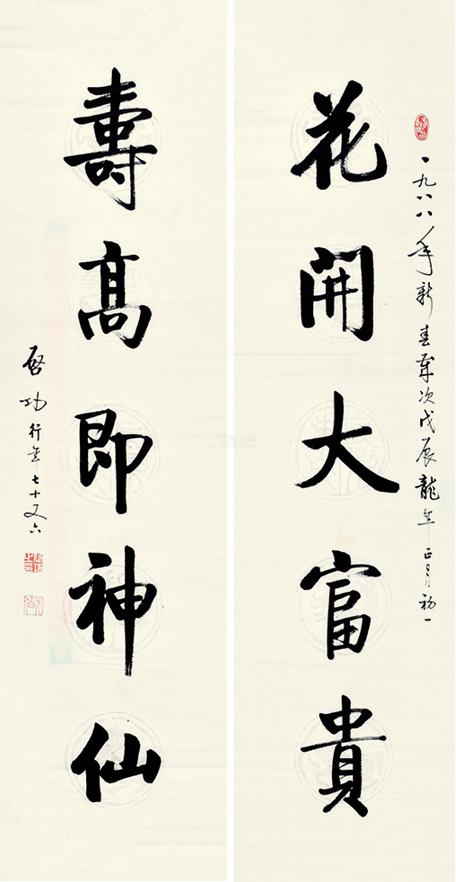 一九八八年新春歲次戊辰龍年正月初一
花開大富貴
壽高即神仙
啓功行年七十又六